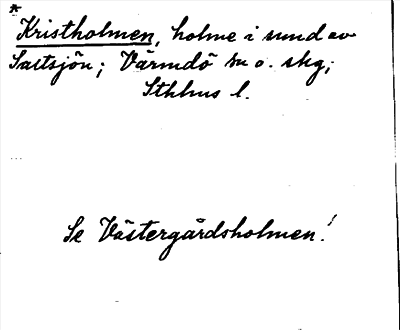 *
Kristholmen, holme i sund av
Saltsjön; Värmdö sn o. skg;
Sthlms l.
Se Västergårdsholmen!